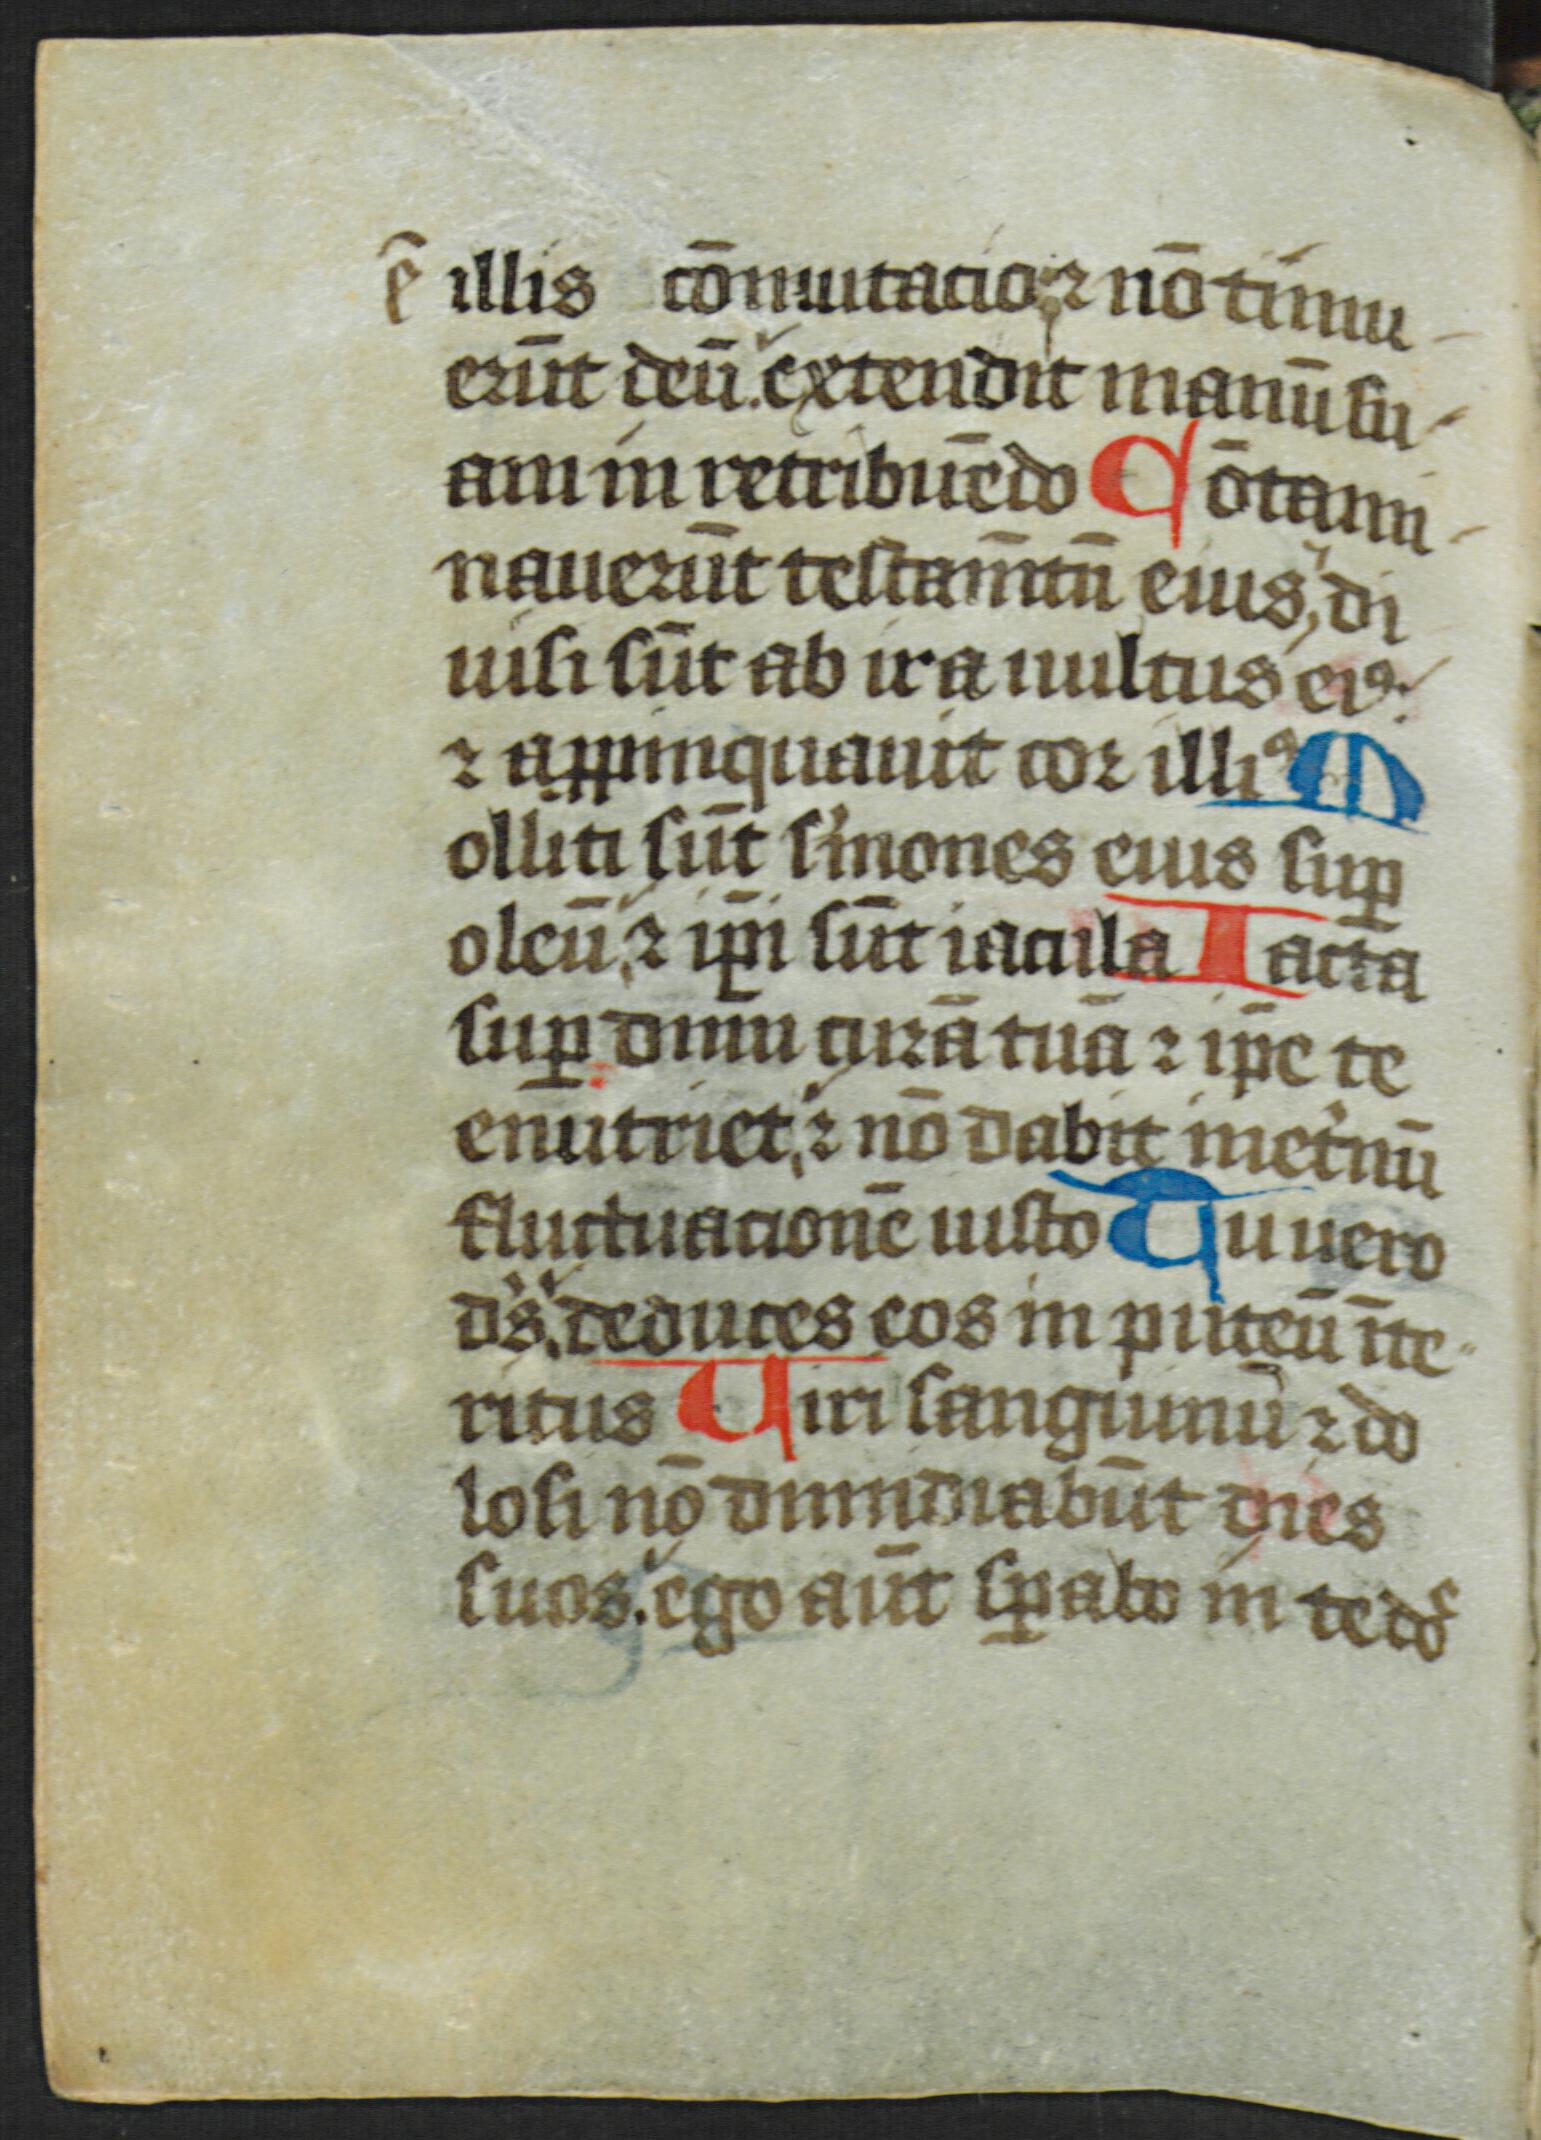 ē illis cōmutacio ⁊ nō timu
erūt deū. extendit manū su
am in retribuēdo Cōtami
nauerūt testam̄tū eius, di
uisi sūt ab ira uultus eiꝰ.
⁊ appinquauit cor illiꝰ M
olliti sūt s̓mones eius suꝑ
oleū, ⁊ ip̄i sūt iacula Iacta
suꝑ dnm̄ curā tuā ⁊ ip̄e te
enutriet, ⁊ nō dabit inet̓nū
fluctuacionē iusto Tu uero
ds̄. deduces eos in puteū īte
ritus Uiri sanguinū ⁊ do
losi nō dimidiabūt dies
suos. ego aūt sꝑabo in te do᷑